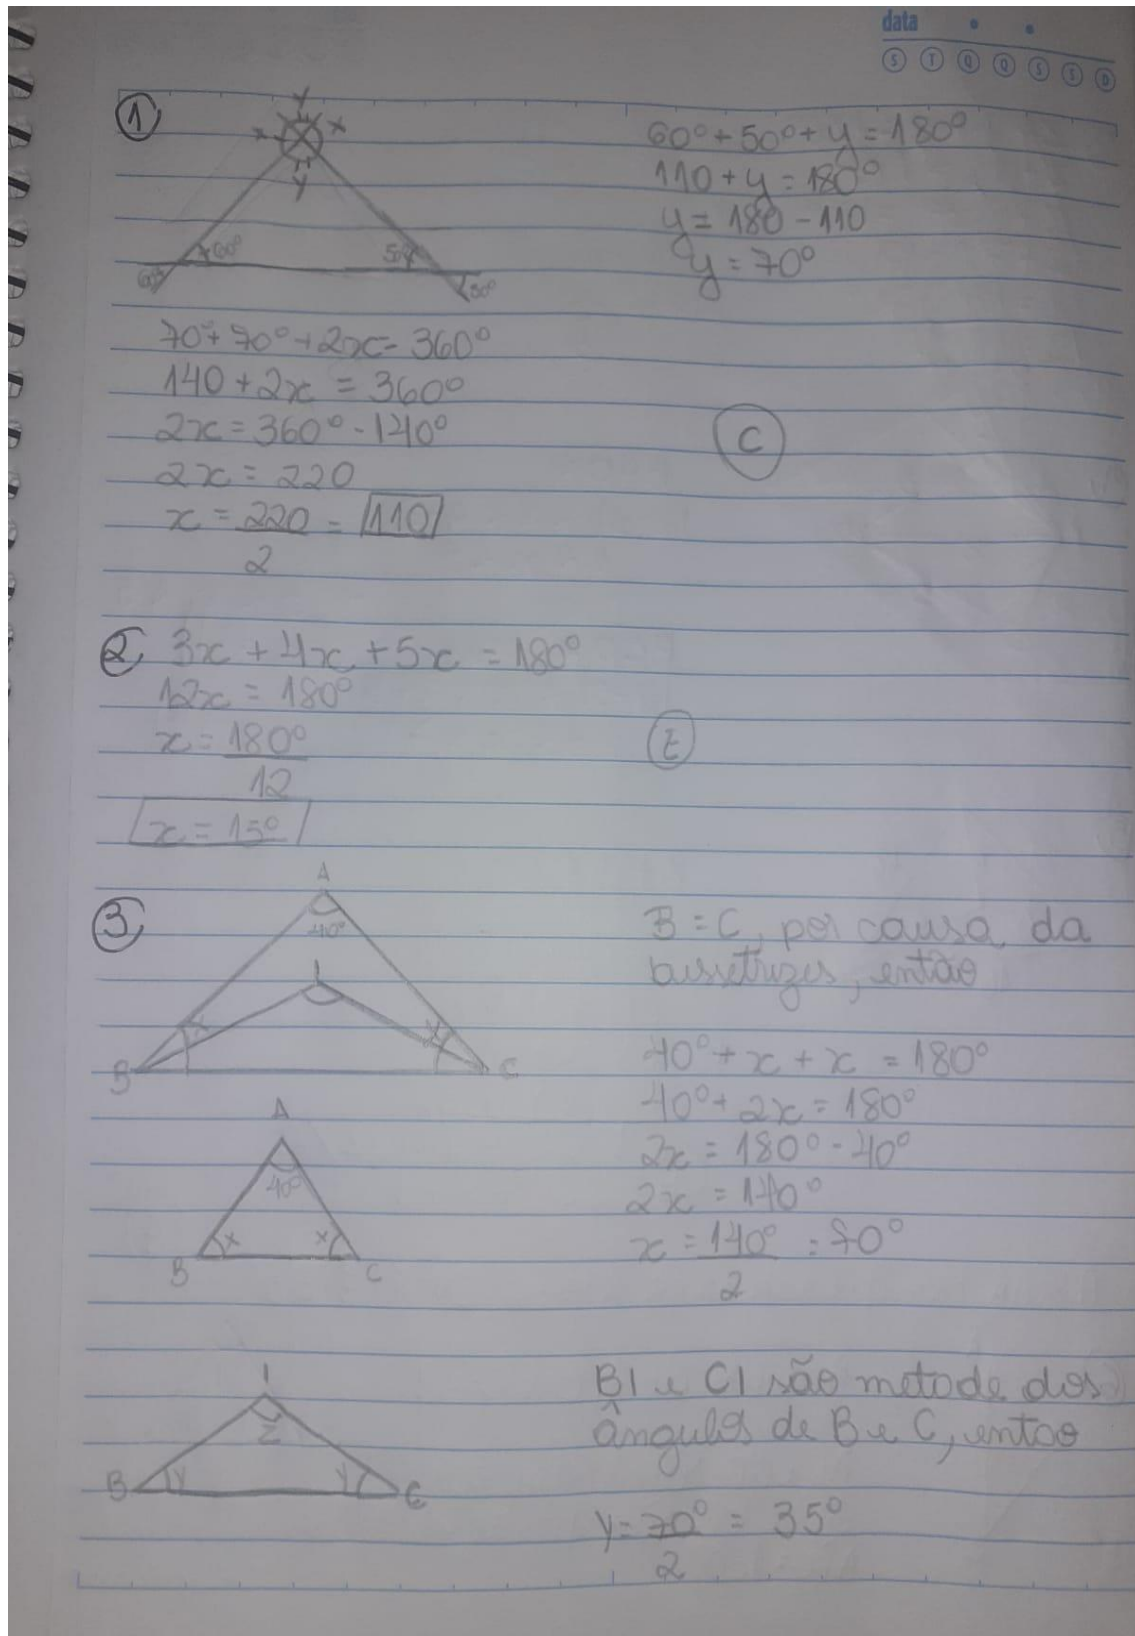 data
S T Q Q S S D
1
y
x x
y
60° 50°
60° 50°
60° + 50° + y = 180°
110 + y = 180°
y = 180 - 110
y = 70°
70° + 70° + 2x = 360°
140 + 2x = 360°
2x = 360° - 140°
2x = 220
x = 220 = 110
2
C
2 3x + 4x + 5x = 180°
12x = 180°
x = 180°
12
x = 15°
E
3
A
40°
I
x x
B C
B = C, por causa da
bissetrizes, então
40° + x + x = 180°
40° + 2x = 180°
2x = 180° - 40°
2x = 140°
x = 140° = 70°
2
A
40°
x x
B C
I
Z
B y y C
BI e CI são metode dos
ângulos de B e C, entao
y = 70° = 35°
2